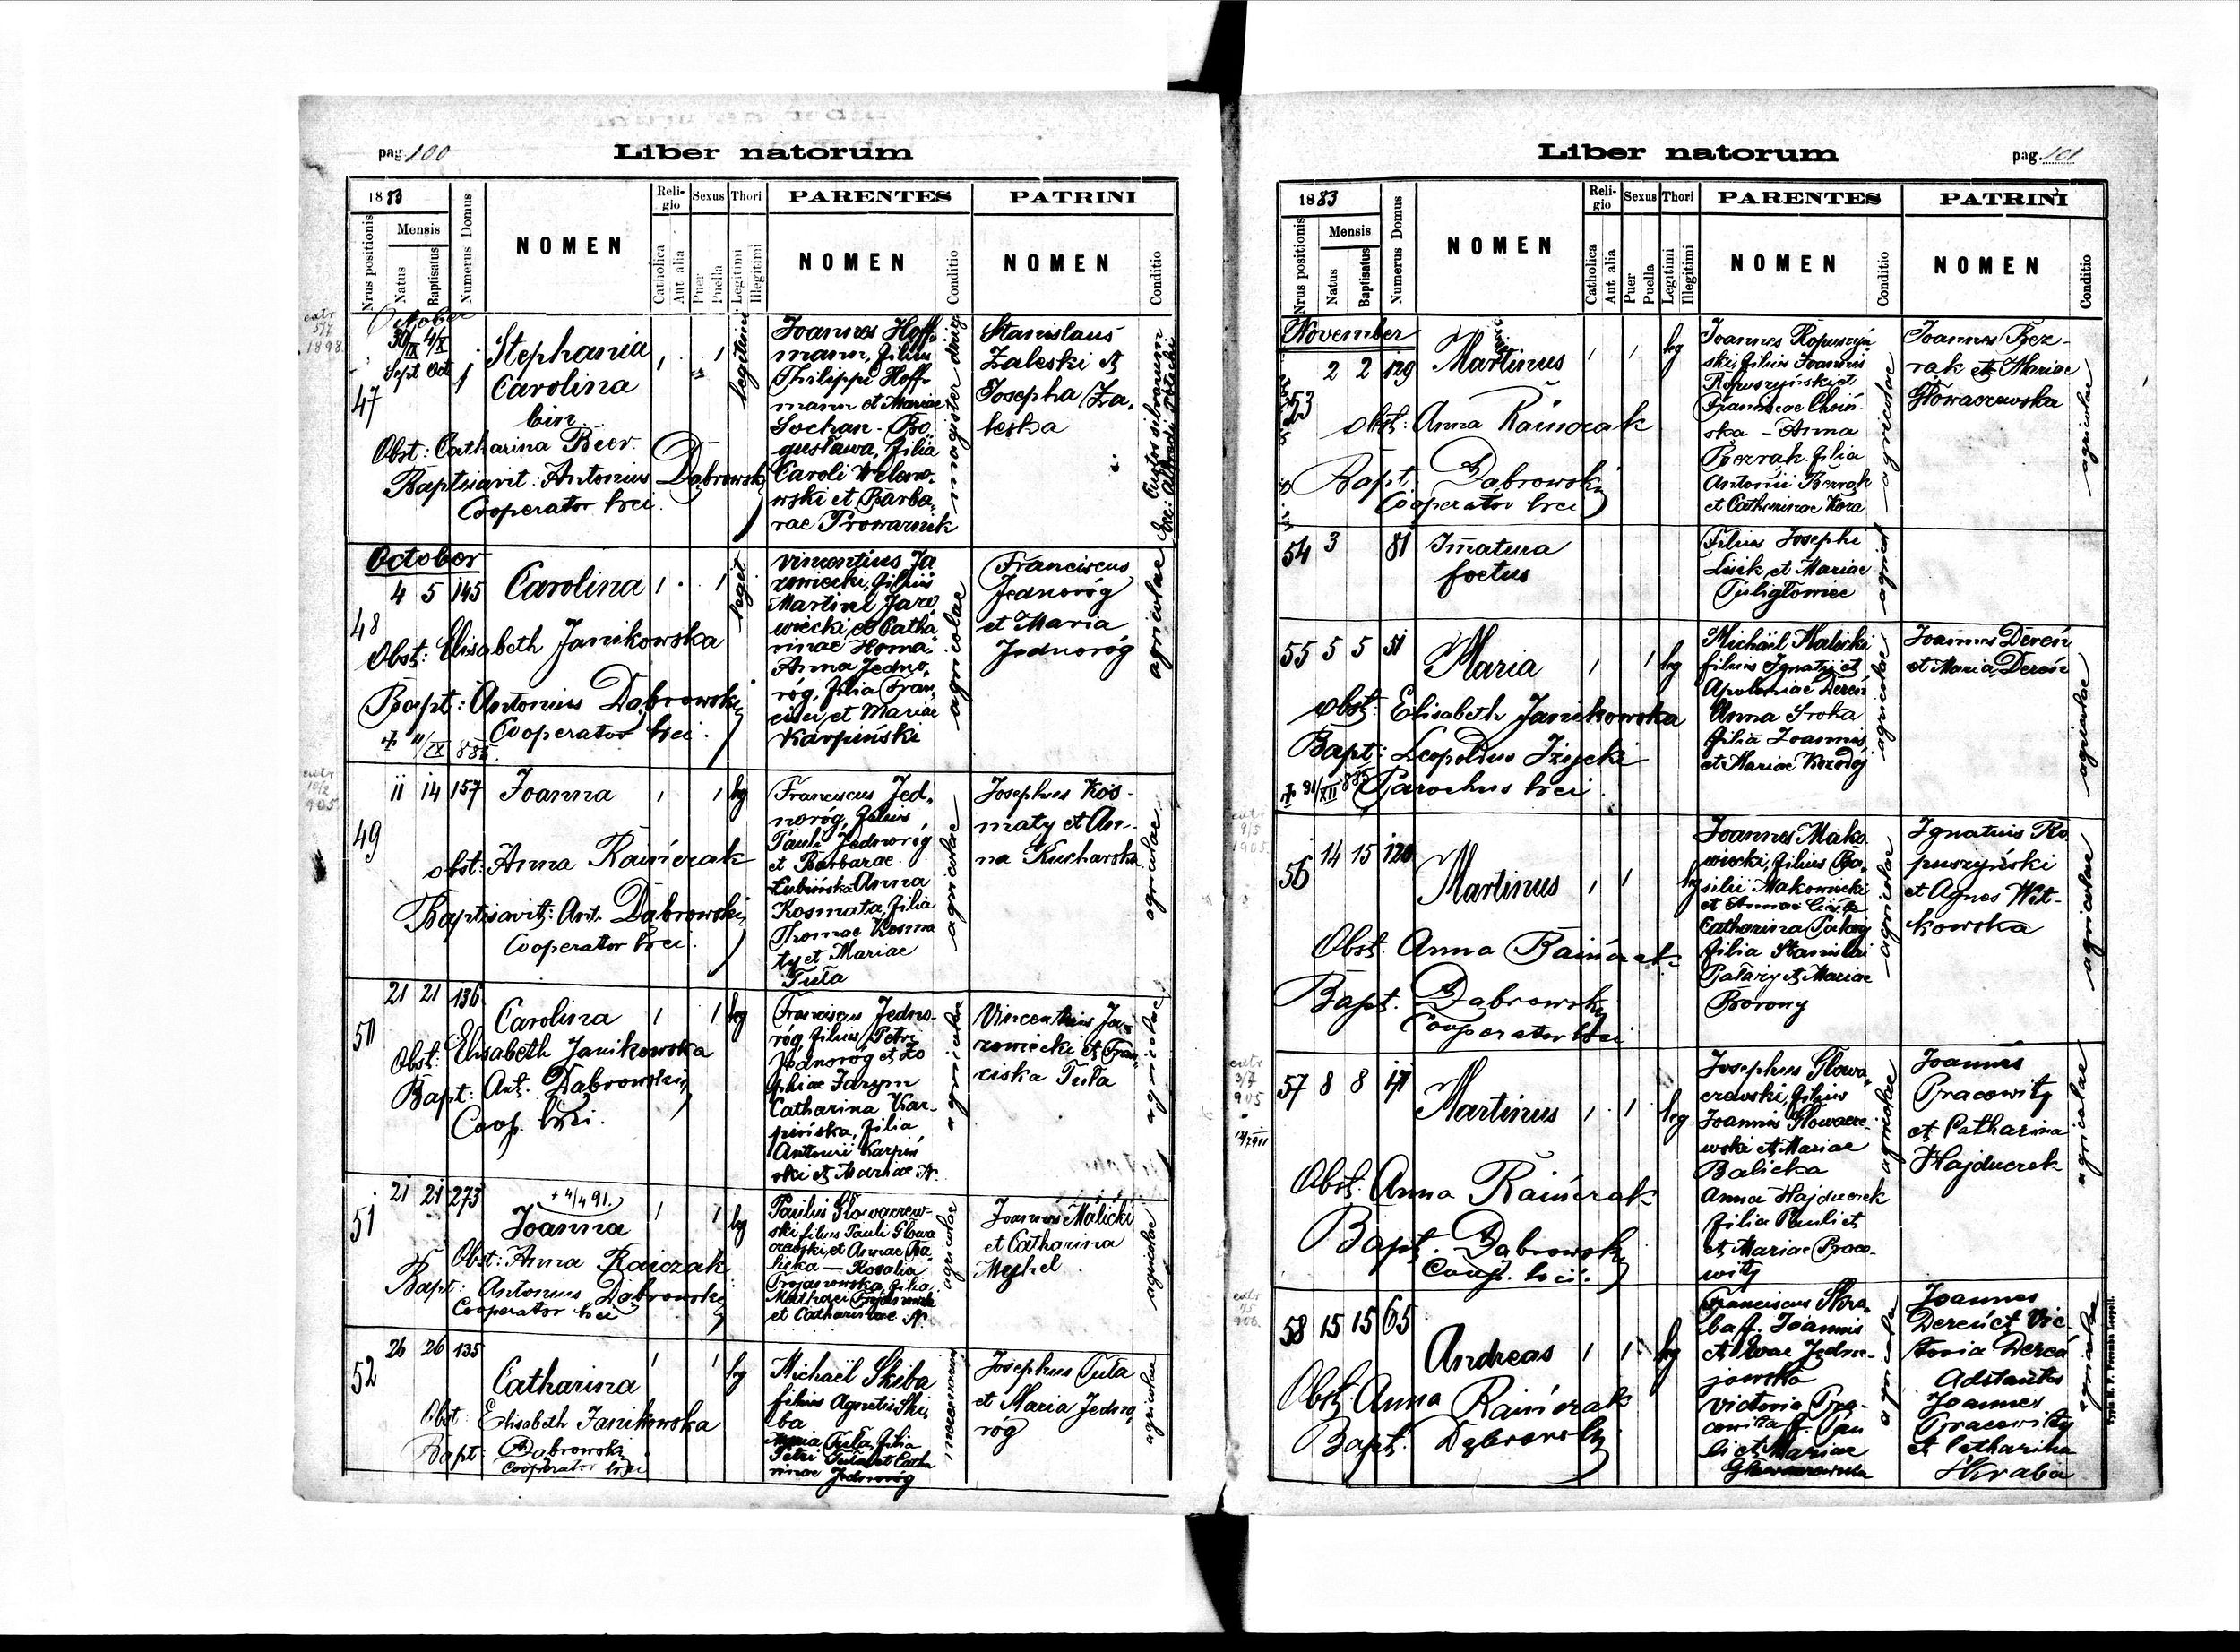 pag. 100
Liber natorum
1883
Nrus positionis
Mensis
Natus
Baptisatus
Numerus Domus
NOMEN
Religio
Catholica
Aut alia
Sexus
Puer
Puella
Thori
Legitimi
Illegitimi
PARENTES
NOMEN
Conditio
PATRINI
NOMEN
Conditio
extr
5/7
1898
October
30/IX 4/X
Sept Oct 1
47
Stephania
Carolina
bin.
Obst: Catharina Beer.
Baptisavit: Antonius Dąbrowski
Cooperator loci.
legitimi
Joannes Hoff-
mann, filius
Philippi Hoff-
mann et Mariae
Sochan - Bo-
gusława, filia
Caroli
wski et Barba-
rae Prowarnik
magister
Stanislaus
Zaleski et
Josepha Za-
leska
Custos silvarum
October
4 5 145
48
Carolina
Obst: Elisabeth Janikowska
Bapt: Antonius Dąbrowski
Cooperator loci.
+ 11/IX 885.
legit
Vincentius Ja
rowiecki, filius
Martini Jaro
wiecki et Catha
rinae Homa
Anna Jedno-
róg, filia Fran-
cisci et Mariae
Karpiński
agricolae
Franciscus
Jednoróg
et Maria
Jednoróg
agricolae
extr
10/2
905
11 14 157
49
Joanna
obst: Anna Rainczak
Baptisavit: Ant. Dąbrowski
Cooperator loci.
leg
Franciscus Jed-
noróg, filius
Pauli Jednoróg
et Barbarae
Łubińska Anna
Kosmata, filia
Thomae Kosma
ty et Mariae
Tuła
agricolae
Josephus Kos-
maty et An-
na Kucharska
agricolae
21 21 136
50
Carolina
Obst: Elisabeth Janikowska
Bapt: Ant. Dąbrowski
Coop. loci.
leg
Franciscus Jedno-
róg, filius Petri
Jednoróg et Zo
phiae Jarym
Catharina Kar-
pińska, filia
Antonii Karpiń
ski et Mariae N.
agricolae
Vincentius Ja-
rowiecki et Fran-
ciska Tuła
agricolae
21 21 273
51
+ 4/4 91.
Joanna
Obst: Anna Rainczak
Bapt: Antonius Dąbrowski
Cooperator loci
leg
Paulus Głowaczew-
ski filius Pauli Głowa
czewski et Annae Ba-
licka - Rosalia
Trojanowska, filia
Mathaei Trojanowski
et Catharinae N.
agricolae
Joannes Malicki
et Catharina
agricolae
26 26 135
52
Catharina
Obst: Elisabeth Janikowska
Bapt: A Dąbrowski
Cooperator loci
leg
Michaël Skiba
filius Agnetis Ski-
ba
Tuła, filia
Petri Tuła et Catha
rinae Jednoróg
Josephus Tuła
et Maria Jedno-
róg
agricolae
Liber natorum
pag. 101
1883
Nrus positionis
Mensis
Natus
Baptisatus
Numerus Domus
NOMEN
Religio
Catholica
Aut alia
Sexus
Puer
Puella
Thori
Legitimi
Illegitimi
PARENTES
NOMEN
Conditio
PATRINI
NOMEN
Conditio
November
2 2 129
53
Martinus
obst: Anna Rainczak
Bapt. A Dąbrowski
Cooperator loci
leg
Joannes Ropuszyń
ski, filius Joannis
Ropuszyński et
Franciscae Choiń-
ska - Anna
Bezrak filia
Antonii Bezrak
et Catharinae Kora
agricolae
Joannes Bez-
rak et Mariae
Głowaczewska
agricolae
54 3 81
Imatura
foetus
Filius Josephi
Lisik et Mariae
Puligłowiec
agricol
55 5 5 51
Maria
obst: Elisabeth Janikowska
Bapt: Leopoldus Iżycki
Parochus loci.
+ 31/XII 885
leg
Michaël Malicki
filius Ignatij et
Apoloniae Dereń
Anna Sroka
filia Joannis
et Mariae Kozodój
agricolae
Joannes Dereń
et Maria Dereń
agricolae
extr
9/5
1905.
14 15 120
56
Martinus
Obst: Anna Rainczak
Bapt. A Dąbrowski
Cooperator loci
leg
Joannes Mako
wiecki, filius Ba-
silii Makowiecki
et Annae
Catharina
filia Stanislai
et Mariae
Borowy
agricolae
Ignatius Ro
puszyński
et Agnes Wit-
kowska
agricolae
extr
3/7
905
57 8 8 171
Martinus
Obst. Anna Rainczak
Bapt. Dąbrowski
Coop. loci.
leg
Josephus Głowa-
czewski, filius
Joannis Głowacze-
wski et Mariae
Balicka
Anna Hajduczek
filia Pauli et
et Mariae Praco-
wity
agricolae
Joannes
Pracowity
et Catharina
Hajduczek
agricolae
extr
1/5
906.
58 15 15 65
Andreas
Obst: Anna Rainczak
Bapt. Dąbrowski
leg
Franciscus Skra-
ba f. Joannis
et Evae Jedno-
jowska
Victoria Pra-
cowita f. Pau
li et Mariae
Głowaczewska
agricolae
Joannes
Dereń et Vic
toria Dereń
Adstantes
Joannes
Pracowity
et Catharina
Skraba
agricolae